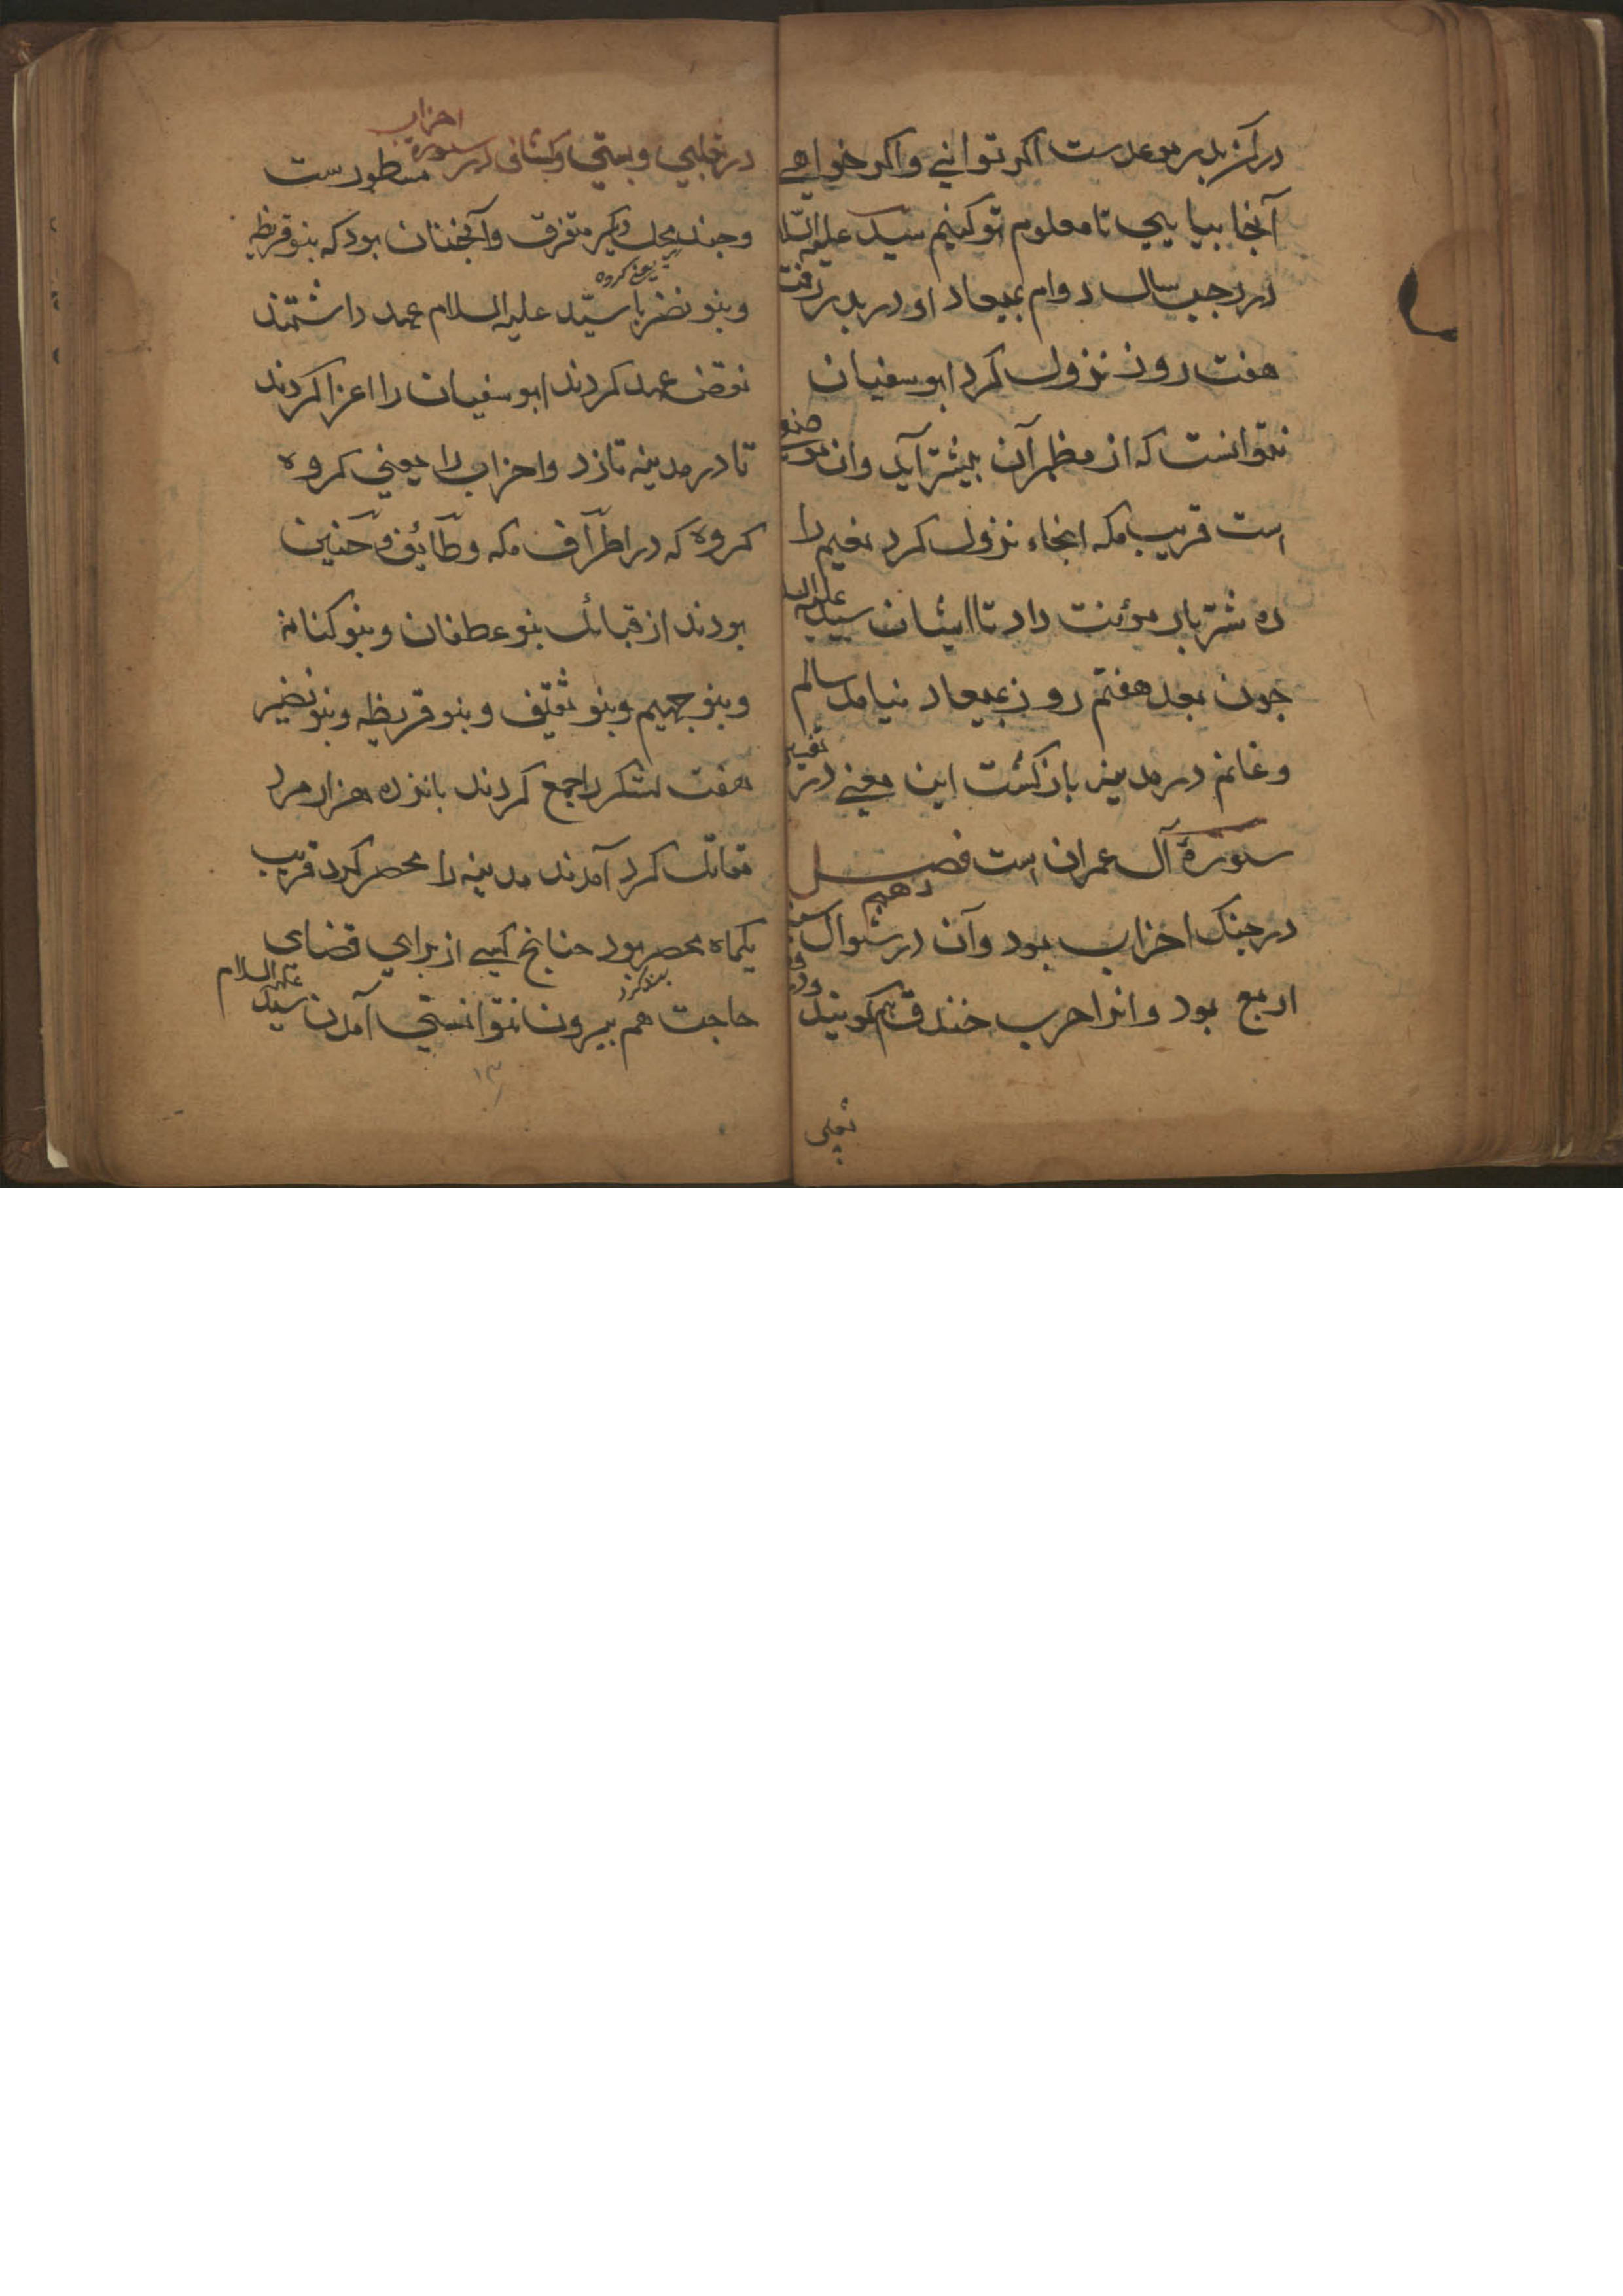 در کز بدر موعد ست اکر توانی واکر خواهی
آنجا بیایی تا معلوم تو کنیم سید علیه السلا
در رجب سال دوام بمیعاد او در بدر رفت
هفت روز نزول کرد ابو سفیان
نتوانست که از مظهرآن بیشتر آید وان موضع
است قریب مکه انجاء نزول کرد نعیم را
ده شتر بار مؤنت داد تا ایشان سید علیه السلا
چون بعد هفتم روز بمیعاد نیامد سالم
وغانم در مدینه باز کشت این معنی در تفسیر
سورهٔ آل عمران است فصل دهم
در جنک احزاب بود وآن در شوال سنه
اربع بود وانرا حرب خندق هم کویند ودر
ثعلبی
در ثعلبی وبستی وکشاف در سورهٔ احزاب مسطور ست
وچند محل دیکر متفرق وآنچنان بود که بنو قریظه
یعنی کروه
وبنو نضیر با سیّد علیه السلام عهد داشتند
نقض عهد کردند ابو سفیان را اغرا کردند
تا در مدینه تازد واحزاب را یعنی کروه
کروه که در اطراف مکه وطائف وحنین
بودند از قبائل بنو عطفان وبنو کنانه
وبنو جهیم وبنو ثقیف وبنو قریظه وبنو نضیر
هفت لشکر را جمع کردند پانزده هزار مرد
مقاتل کرد آمدند مدینه را محصر کرد قریب
یکماه محصر بود چنانچ کسی از برای قضای
حاجت هم بیرون نتوانستی آمدن سید علیه السلام
۱۳